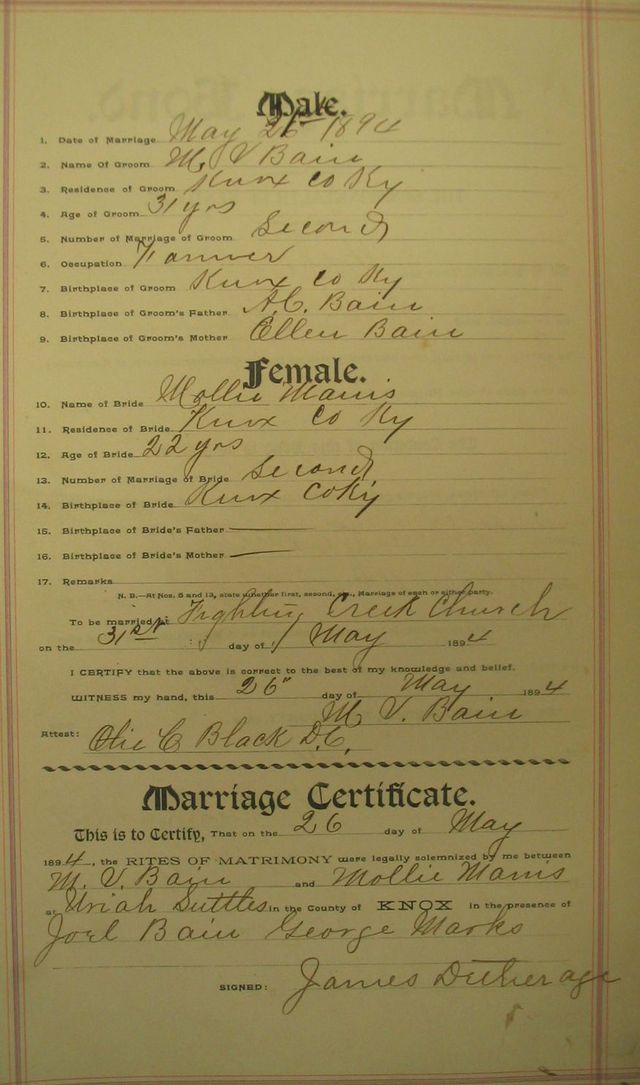 Male.
1. Date of Marriage May 26 1894
2. Name Of Groom M. V Bain
3. Residence of Groom Knox Co Ky
4. Age of Groom 31 yrs
5. Number of Marriage of Groom Second
6. Occupation Farmer
7. Birthplace of Groom Knox Co Ky
8. Birthplace of Groom's Father A. C. Bain
9. Birthplace of Groom's Mother Ellen Bain
Female.
10. Name of Bride Mollie
11. Residence of Bride Knox Co Ky
12. Age of Bride 22 yrs
13. Number of Marriage of Bride Second
14. Birthplace of Bride Knox Co Ky
15. Birthplace of Bride's Father
16. Birthplace of Bride's Mother
17. Remarks
N. B.—At Nos. 5 and 13, state whether first, second, etc., Marriage of each or either party.
To be married at Fighting Creek Church
on the 31st day of May 1894
I CERTIFY that the above is correct to the best of my knowledge and belief.
WITNESS my hand, this 26" day of May 1894
M V. Bain
Attest: Olie C Black D.C.
Marriage Certificate.
This is to Certify, That on the 26 day of May
1894, the RITES OF MATRIMONY were legally solemnized by me between
M. V. Bain and Mollie
at Uriah Suttles in the County of KNOX in the presence of
Joel Bain George Marks
SIGNED: James